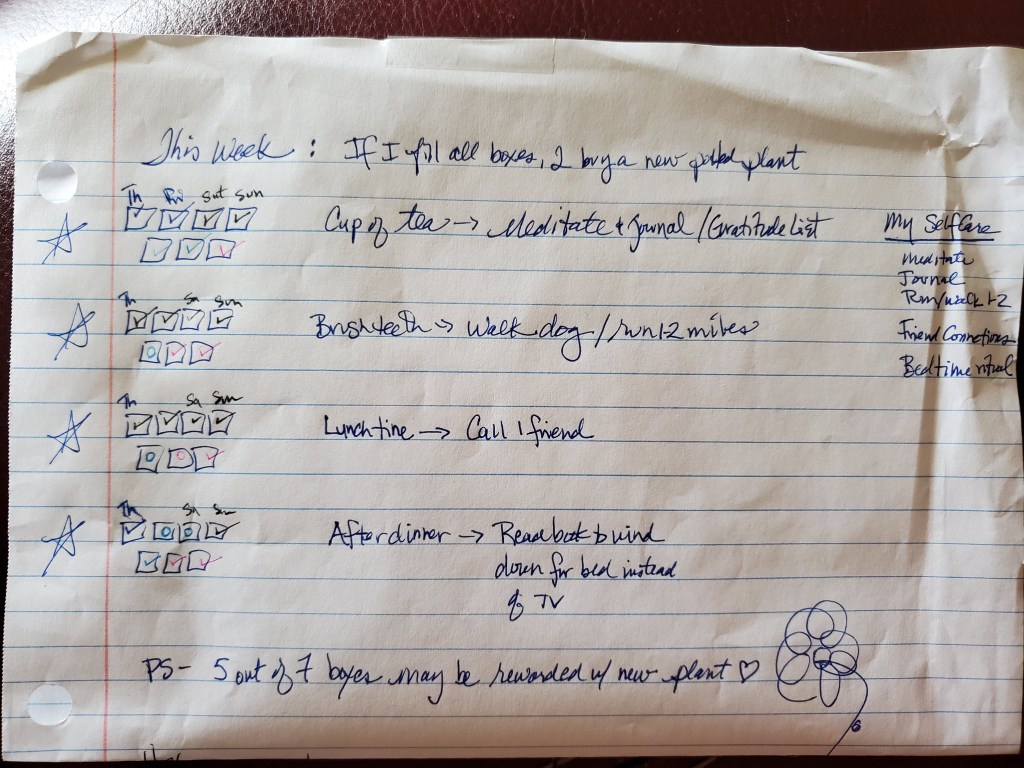 This Week : If I fill all boxes, I buy a new potted plant
Th Fri Sat Sun
Cup of tea → Meditate + Journal / Gratitude List
My Selfcare
Meditate
Journal
Run/walk 1-2
Friend Connections
Bedtime ritual
Th Sa Sun
Brush teeth → Walk dog / run 1-2 miles
Th Sa Sun
Lunchtime → Call 1 friend
Th Sa Sun
After dinner → Read book to wind
down for bed instead
of TV
PS - 5 out of 7 boxes may be rewarded w/ new plant ♡